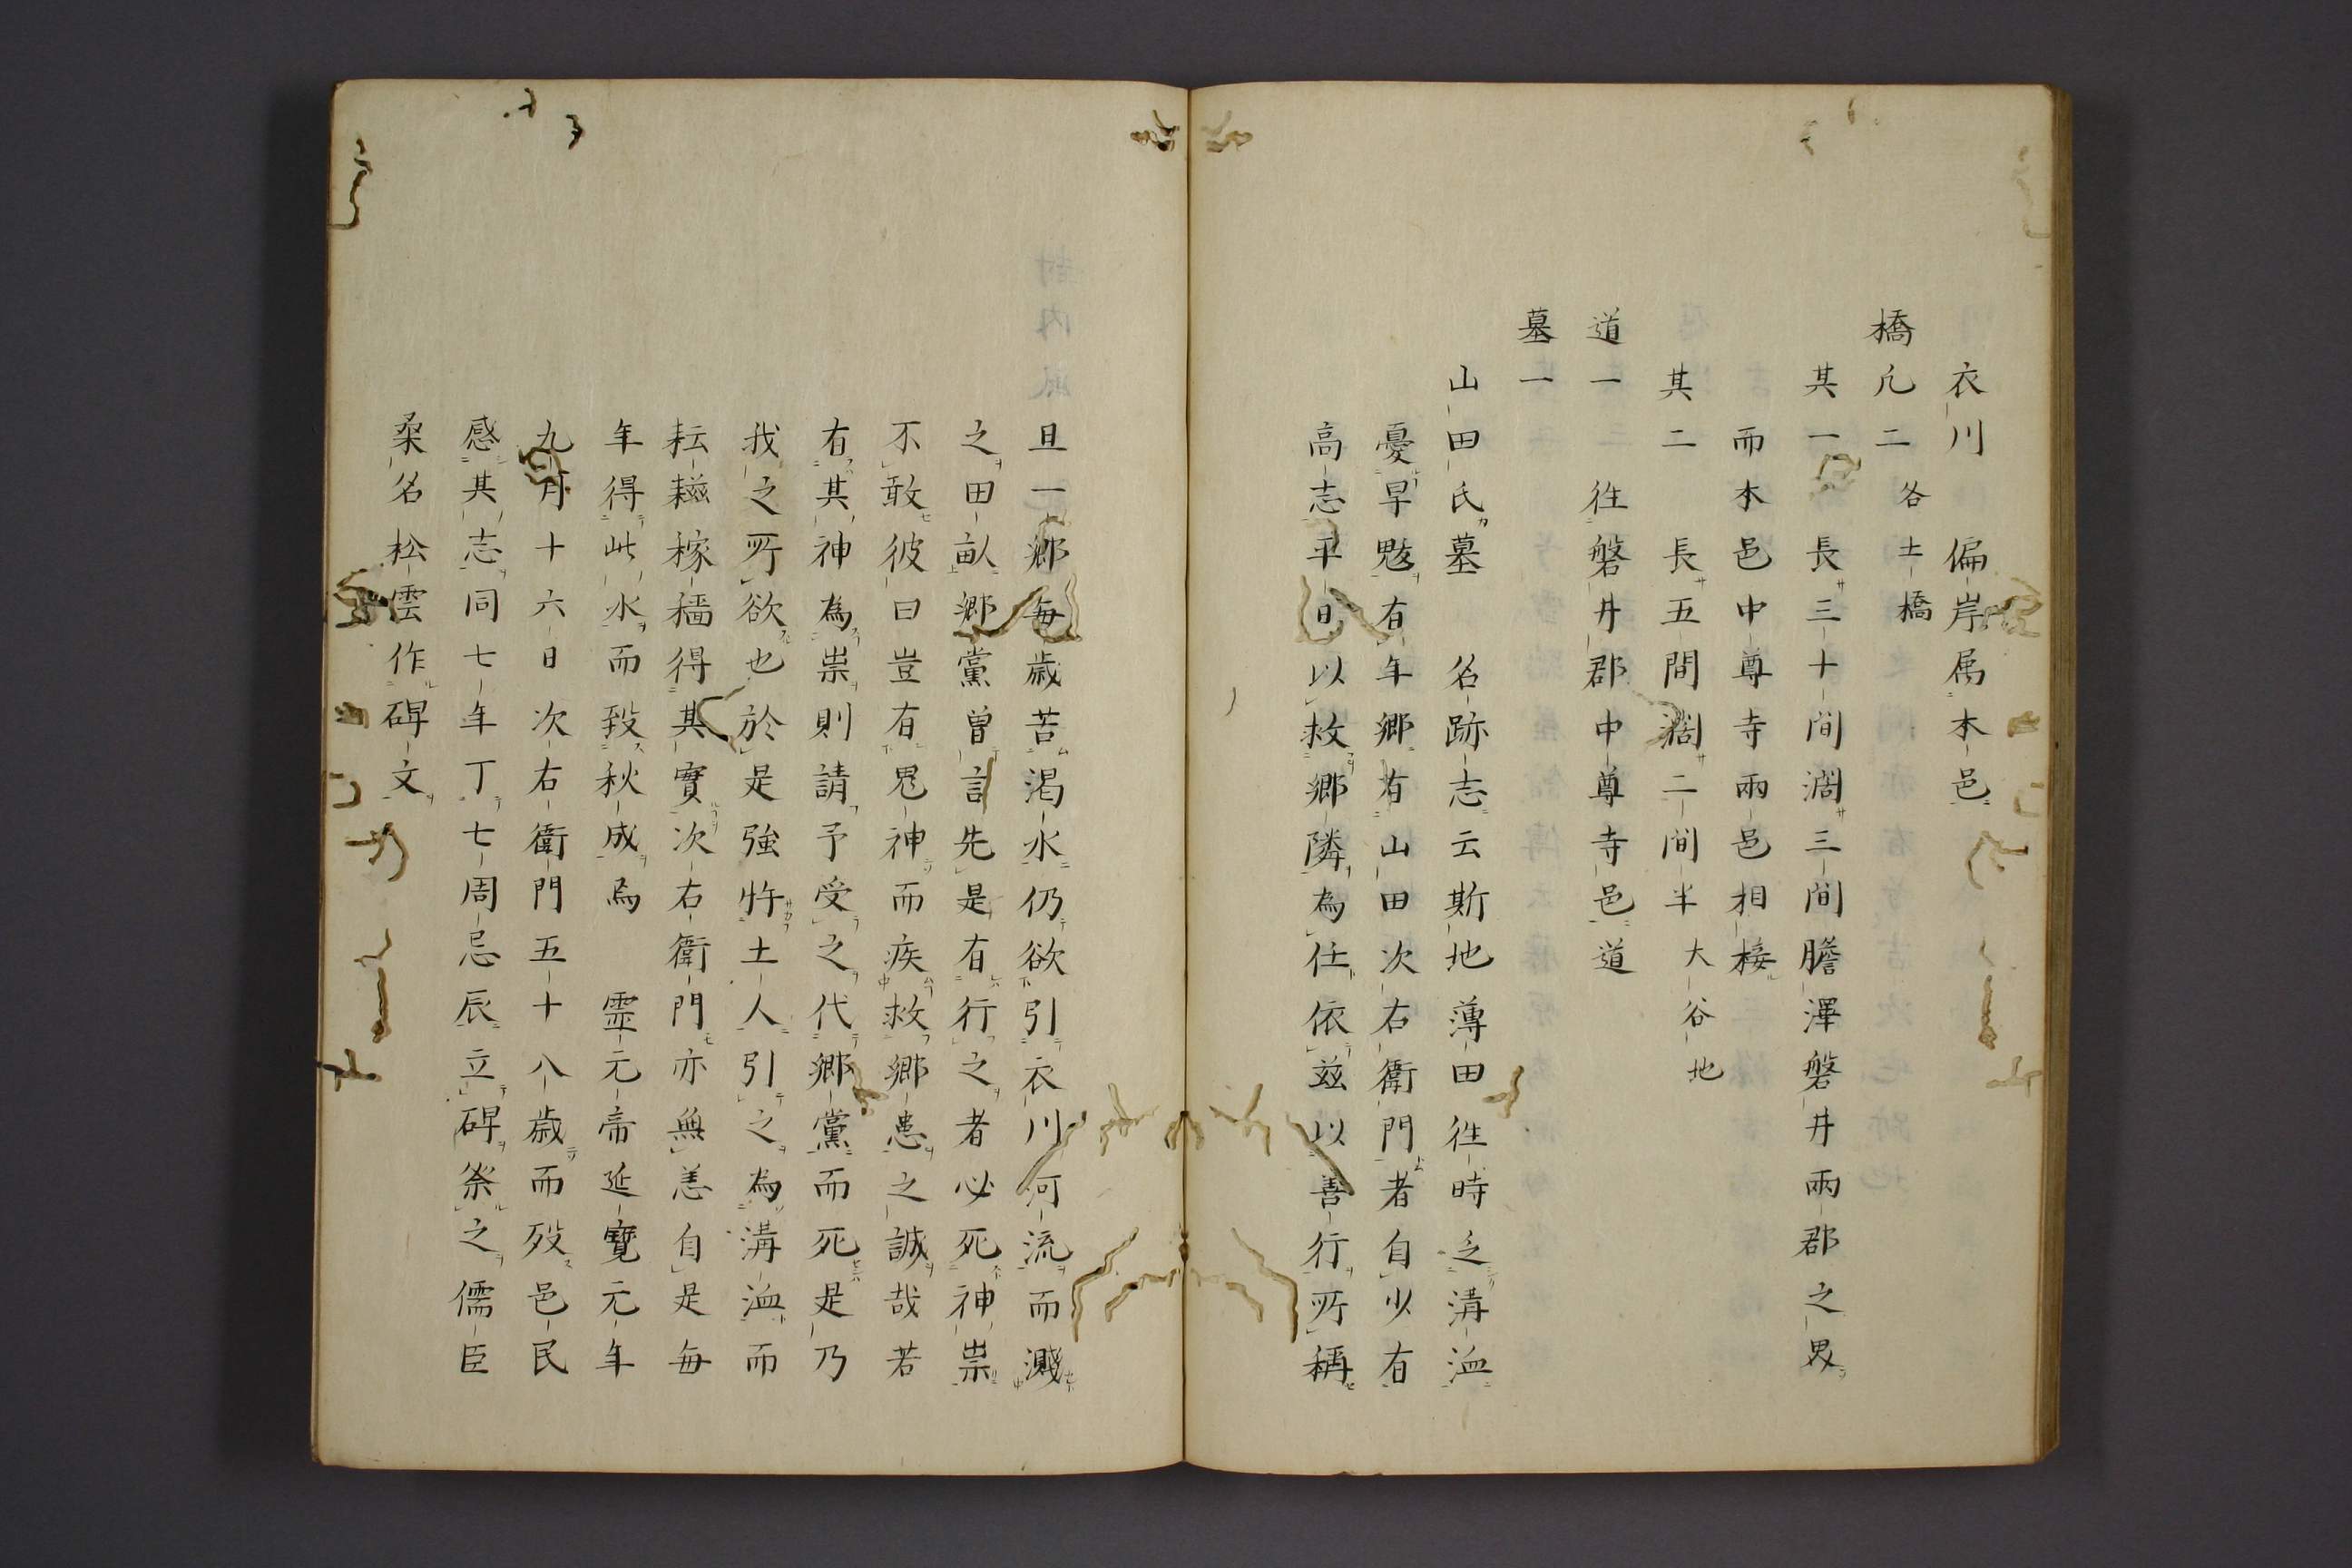 衣川 偏岸属本邑
橋凡二 各土橋
其一 長三十間濶三間膽澤磐井兩郡之界
而本邑中尊寺兩邑相接
其二 長五間濶二間半 大谷地
道一 徃磐井郡中尊寺邑道
墓一
山田氏墓 名跡志云斯地薄田徃時乏溝洫
憂旱魃有年郷有山田次右衛門者自少有
高志平日以救郷隣為仕依茲以善行所稱
旦一郷毎歳苦渇水仍欲引衣川河流而濺
之田畝郷黨曽言先是有行之者必死神祟
不敢彼曰豈有鬼神而疾救郷患之誠哉若
有其神為祟則請予受之代郷黨而死是乃
我之所欲也於是強忤土人引之為溝洫而
耘耔稼穡得其實次右衛門亦無恙自是毎
年得此水而致秋成焉 霊元帝延寶元年
九月十六日次右衛門五十八歳而歿邑民
感其志同七年丁七周忌辰立碑祭之儒臣
桒名松雲作碑文